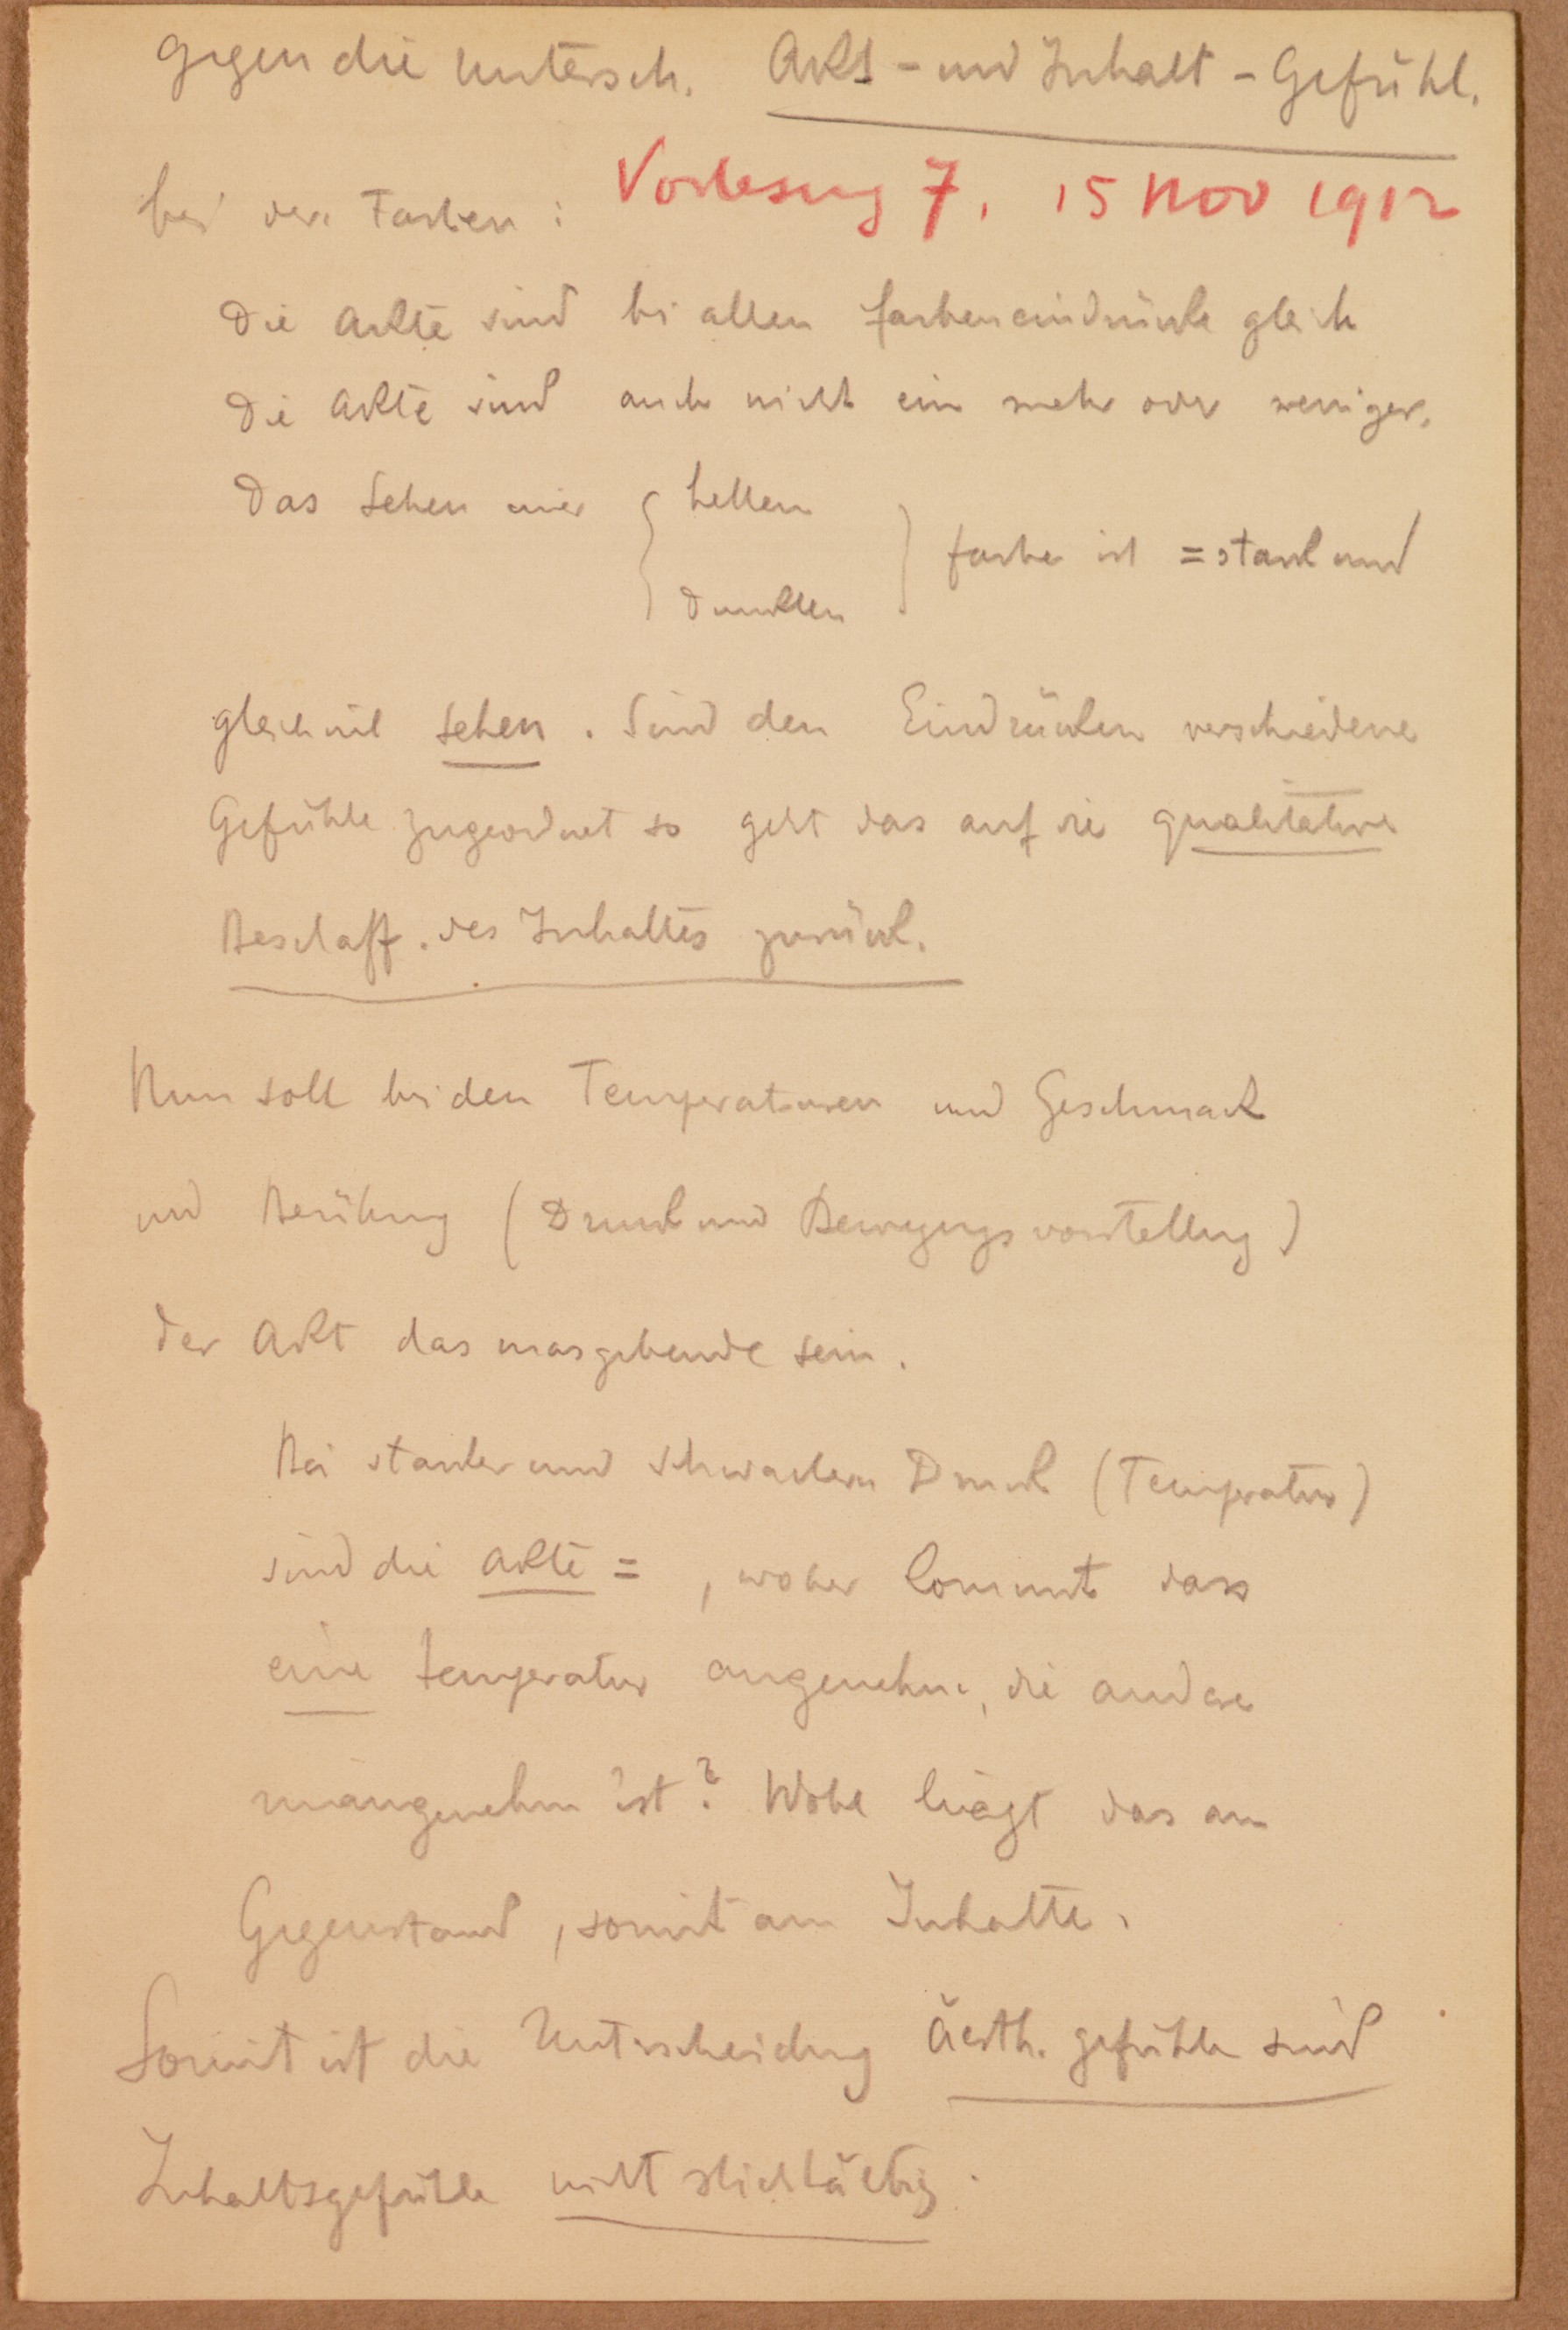 Gegen die Untersch. Akt - und Inhalt - Gefühl.
Vorlesung 7, 15 Nov 1912
bei den Farben :
Die Akte sind bei allen Farbeneindrücke gleich
Die Akte sind auch nicht ein mehr oder weniger.
Das Sehen einer { hellen
dunklen } Farbe ist = stark und
gleichviel Sehen . Sind den Eindrücken verschiedene
Gefühle zugeordnet so geht das auf die qualitative
Beschaff. des Inhaltes zurück.
Nun soll bei den Temperaturen und Geschmack
und Berührung ( Druck und Bewegungsvorstellung )
der Akt das masgebende sein .
Bei starken und schwachem Druck (Temperatur)
sind die Akte = , woher kommt dass
eine Temperatur angenehm, die andere
unangenehm ist ? Wohl liegt das am
Gegenstand , somit am Inhalte .
Somit ist die Unterscheidung Äesth. gefühle sind
Inhaltsgefühle nicht stichhältig .